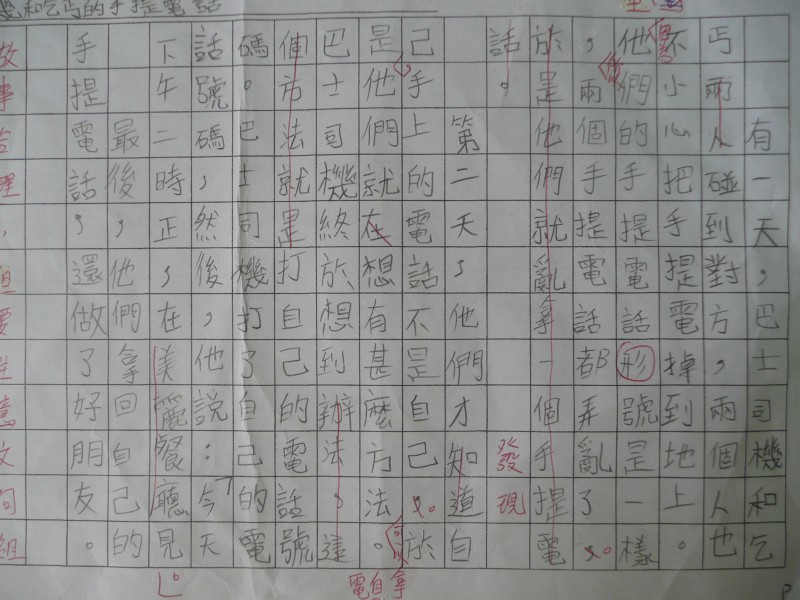 機和乞丐的手提電話
有一天，巴士司機和乞
丐兩人碰到對方，兩個人也
不小心把手提電掉到地上。
他們的手提電話形號是一樣
，兩個手提電話都弄亂了。
於是他們就亂拿一個手提電
話。
發現
第二天，他們才知道自
己手上的電話不是自己。於
是他們就在想有甚麼方法。
巴士司機終於想到辦法，這
個方法就是打自己的電話號
碼。巴士司機打了自己的電
話號碼，然後，他說：今天
下午二時，正，在美麗餐廳見
。
最後，他們拿回自己的
手提電話，還做了好朋友。
故事合理，但要注意文句組